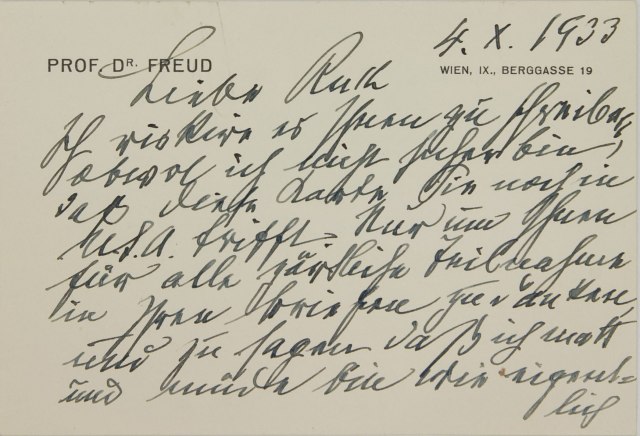 4. X. 1933
PROF. DR. FREUD
WIEN, IX., BERGGASSE 19
Liebe Ruth
Ich riskire es Ihnen zu schreiben,
obwol ich nicht sicher bin,
daß diese Karte Sie noch in
U.S.A. trifft. Nur um Ihnen
für alle zärtliche Teilnahme
in Ihren Briefen zu danken,
und zu sagen daß ich matt
und müde bin wie eigent-
lich